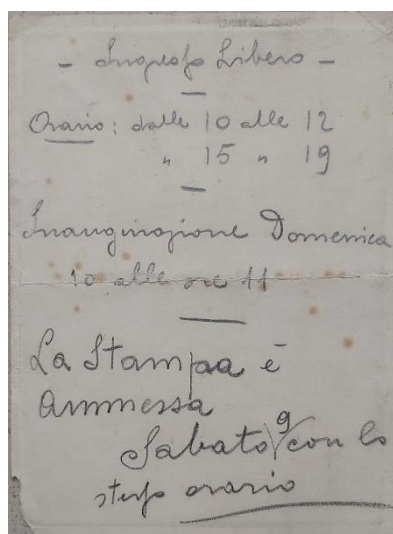 - Ingresso Libero -
Orario: dalle 10 alle 12
" 15 " 19
Inaugurazione Domenica
10 alle ore 11
La Stampa è
ammessa
Sabato 9 con lo
stesso orario